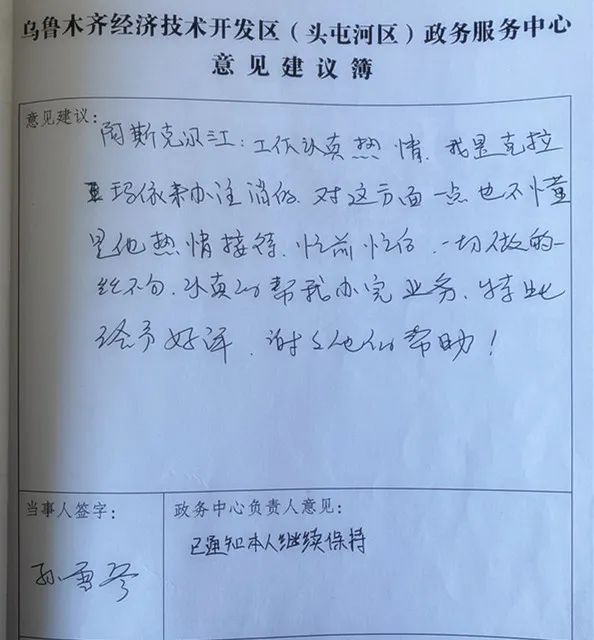 乌鲁木齐经济技术开发区（头屯河区）政务服务中心
意见建议簿
意见建议：
阿斯克尔江：工作认真热情，我是克拉
玛依来办注销的，对这方面一点也不懂
是他热情接待，忙前忙后，一切做的一
丝不苟，认真的帮我办完业务，特此
给予好评，谢谢他的帮助！
当事人签字：
孙雪
政务中心负责人意见：
已通知本人继续保持